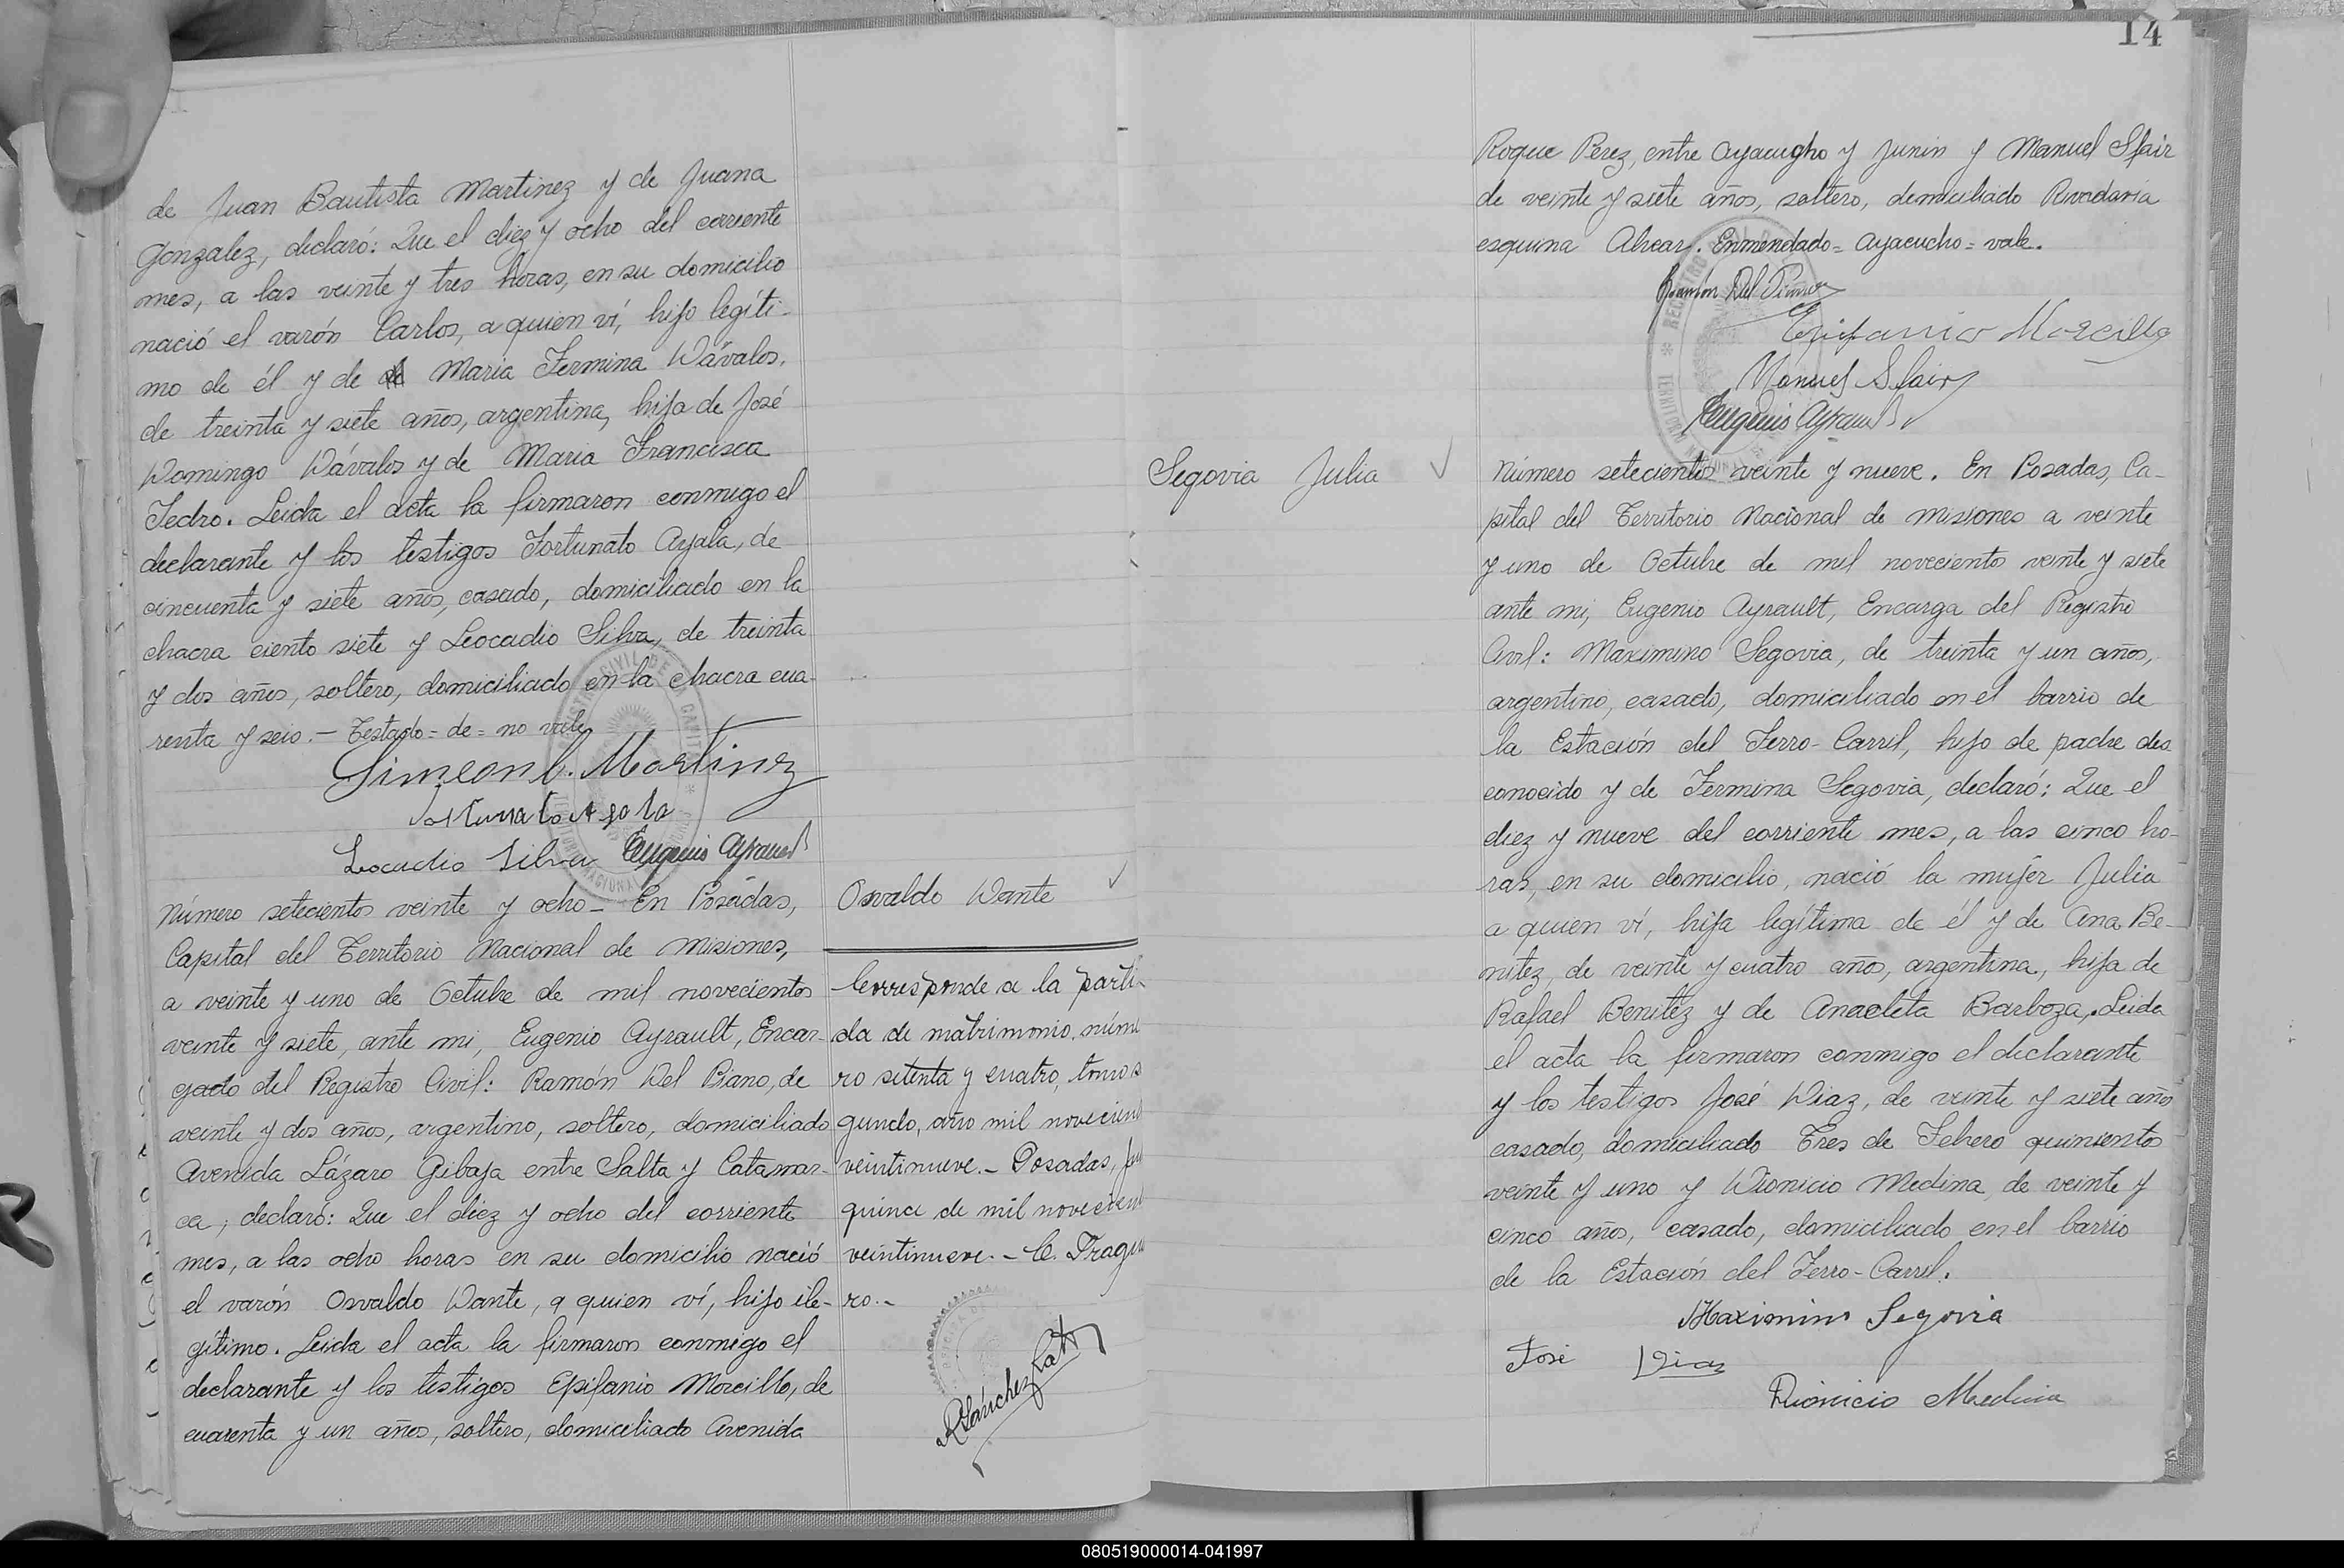 de Juan Bautista Martinez y de Juana
Gonzalez, declaró: Que el diez y ocho del corriente
mes, a las veinte y tres horas, en su domicilio
nació el varón Carlos, a quien ví, hijo legíti-
mo de él y de de Maria Fermina Dávalos,
de treinta y siete años, argentina, hija de José
Domingo Dávalos y de Maria Francisca
Ledro. Leida el acta la firmaron conmigo el
declarante y los testigos Fortunato Ayala, de
cincuenta y siete años, casado, domiciliado en la
chacra ciento siete y Leocadio Silva, de treinta
y dos años, soltero, domiciliado en la chacra cua-
renta y seis.- Testado= de= no vale
Simeon C. Martinez
Fortunato Ayala
Leocadio Silva Eugenio Ayrault
Número setecientos veinte y ocho- En Posadas,
Capital del Territorio Nacional de Misiones,
a veinte y uno de Octubre de mil novecientos
veinte y siete, ante mi, Eugenio Ayrault, Encar-
gado del Registro Civil: Ramón Del Piano, de
veinte y dos años, argentino, soltero, domiciliado
Avenida Lázaro Gibaja entre Salta y Catamar-
ca, declaró: Que el diez y ocho del corriente
mes, a las ocho horas en su domicilio nació
el varón Osvaldo Dante, a quien ví, hijo ile-
gítimo. Leida el acta la firmaron conmigo el
declarante y los testigos Epifanio Morcillo, de
cuarenta y un años, soltero, domiciliado Avenida
Osvaldo Dante
Corresponde a la parti-
da de matrimonio, núme
ro setenta y cuatro, tomo s
gundo, año mil novecien
veintinueve.- Posadas, Ju
quince de mil novecient
veintinueve.- C. Fragu
ro.-
R Sánchez Ratti
14
Roque Perez, entre Ayacucho y Junin y Manuel Sfair
de veinte y siete años, soltero, domiciliado Rivadavia
esquina Alvear. Enmendado= Ayacucho= vale.
Ramon Del Piano
Epifanio Morcillo
Manuel Sfair
Eugenio Ayrault
Segovia Julia
Número setecientos veinte y nueve. En Posadas, Ca-
pital del Territorio Nacional de Misiones a veinte
y uno de Octubre de mil novecientos veinte y siete
ante mi, Eugenio Ayrault, Encarga del Registro
Civil: Maximino Segovia, de treinta y un años,
argentino, casado, domiciliado en el barrio de
la Estación del Ferro-Carril, hijo de padre des
conocido y de Fermina Segovia, declaró: Que el
diez y nueve del corriente mes, a las cinco ho-
ras, en su domicilio, nació la mujer Julia
a quien ví, hija legítima de él y de Ana Be-
nitez, de veinte y cuatro años, argentina, hija de
Rafael Benitez y de Anacleta Barboza. Leida
el acta la firmaron conmigo el declarante
y los testigos José Diaz, de veinte y siete años
casado, domiciliado Tres de Febrero quinientos
veinte y uno y Dionicio Medina de veinte y
cinco años, casado, domiciliado en el barrio
de la Estación del Ferro-Carril.
Maximino Segovia
José Diaz
Dionicio Medina
080519000014-041997